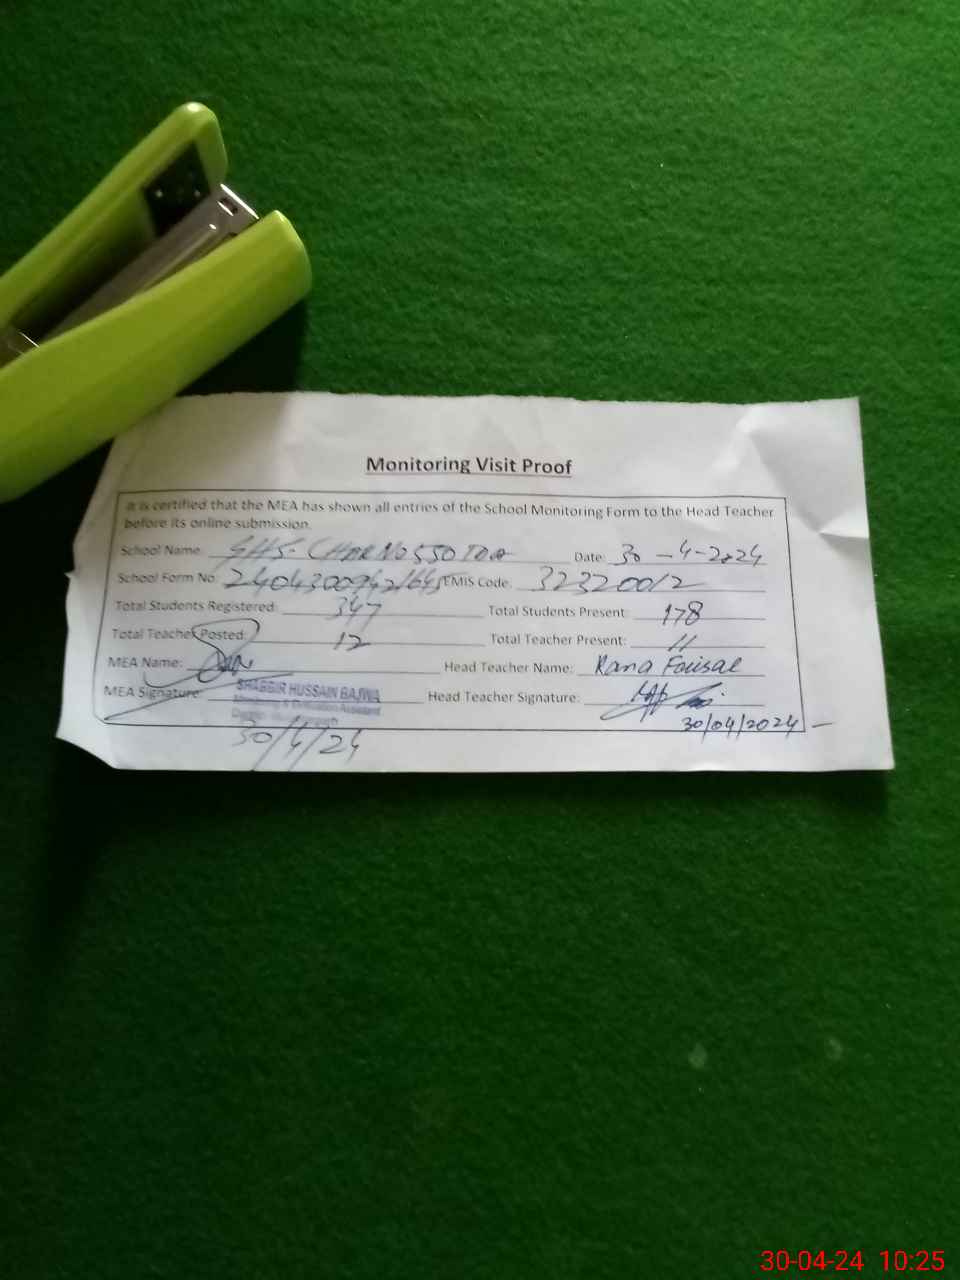 Monitoring Visit Proof
It is certified that the MEA has shown all entries of the School Monitoring Form to the Head Teacher
before its online submission.
School Name: GHS- CHAK No 550 TDA Date: 30-4-2024
School Form No: EMIS Code: 32320012
Total Students Registered: 347 Total Students Present: 178
Total Teacher Posted: 12 Total Teacher Present: 11
MEA Name: Head Teacher Name: Rana Faisal
MEA Signature: SHABBIR HUSSAIN BAJWA Head Teacher Signature:
Monitoring & Evaluation Assistant
30/4/24 30/04/2024
30-04-24 10:25